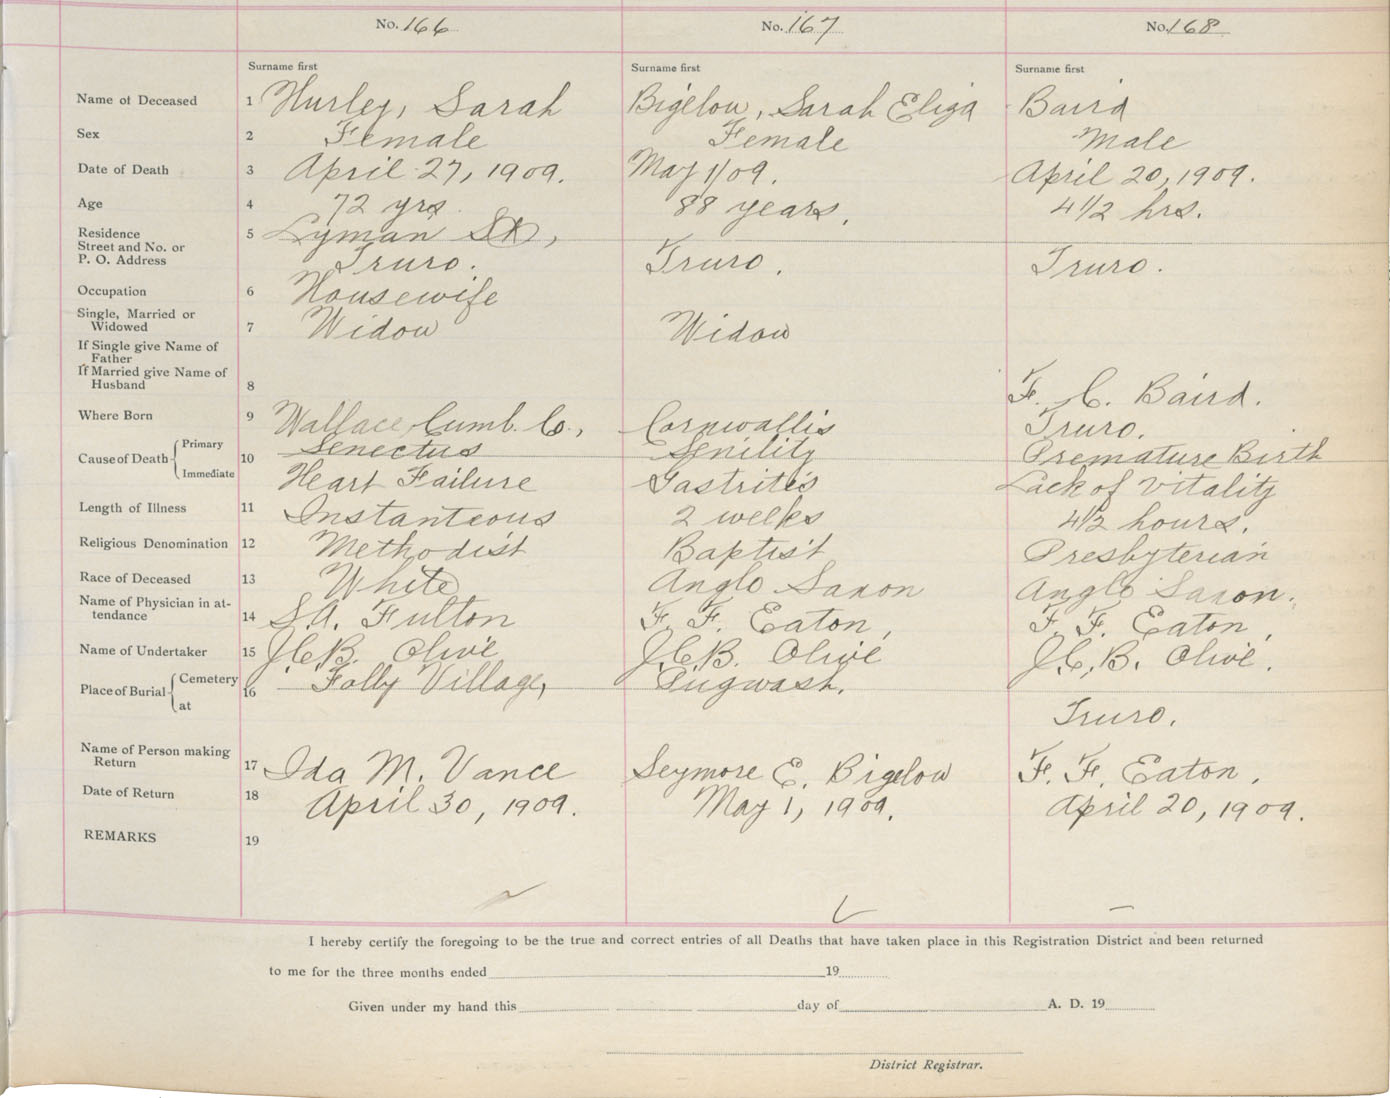 No. 166 No. 167 No. 168
Surname first Surname first Surname first
Name of Deceased 1 Hurley, Sarah Bigelow, Sarah Eliza Baird
Sex 2 Female Female Male
Date of Death 3 April 27, 1909. May 1/09. April 20, 1909.
Age 4 72 yrs 88 years. 4 1/2 hrs.
Residence 5 Lyman St,
Street and No. or
P. O. Address Truro. Truro. Truro.
Occupation 6 Housewife
Single, Married or
Widowed 7 Widow Widow
If Single give Name of
Father
If Married give Name of
Husband 8 F. C. Baird.
Where Born 9 Wallace Cumb. Co., Cornwallis Truro.
Cause of Death Primary 10 Senectus Senility Premature Birth
Immediate Heart Failure Gastrites Lack of Vitality
Length of Illness 11 Instanteous 2 weeks 4 1/2 hours.
Religious Denomination 12 Methodist Baptist Presbyterian
Race of Deceased 13 White Anglo Saxon Anglo Saxon.
Name of Physician in at-
tendance 14 S.A. Fulton F. F. Eaton, F. F. Eaton,
Name of Undertaker 15 J.C.B. Olive J.C.B. Olive J.C.B. Olive.
Place of Burial Cemetery 16 Folly Village, Pugwash.
at Truro.
Name of Person making
Return 17 Ida M. Vance Seymore E. Bigelow F. F. Eaton.
Date of Return 18 April 30, 1909. May 1, 1909. April 20, 1909.
REMARKS 19
I hereby certify the foregoing to be the true and correct entries of all Deaths that have taken place in this Registration District and been returned
to me for the three months ended 19
Given under my hand this day of A. D. 19
District Registrar.